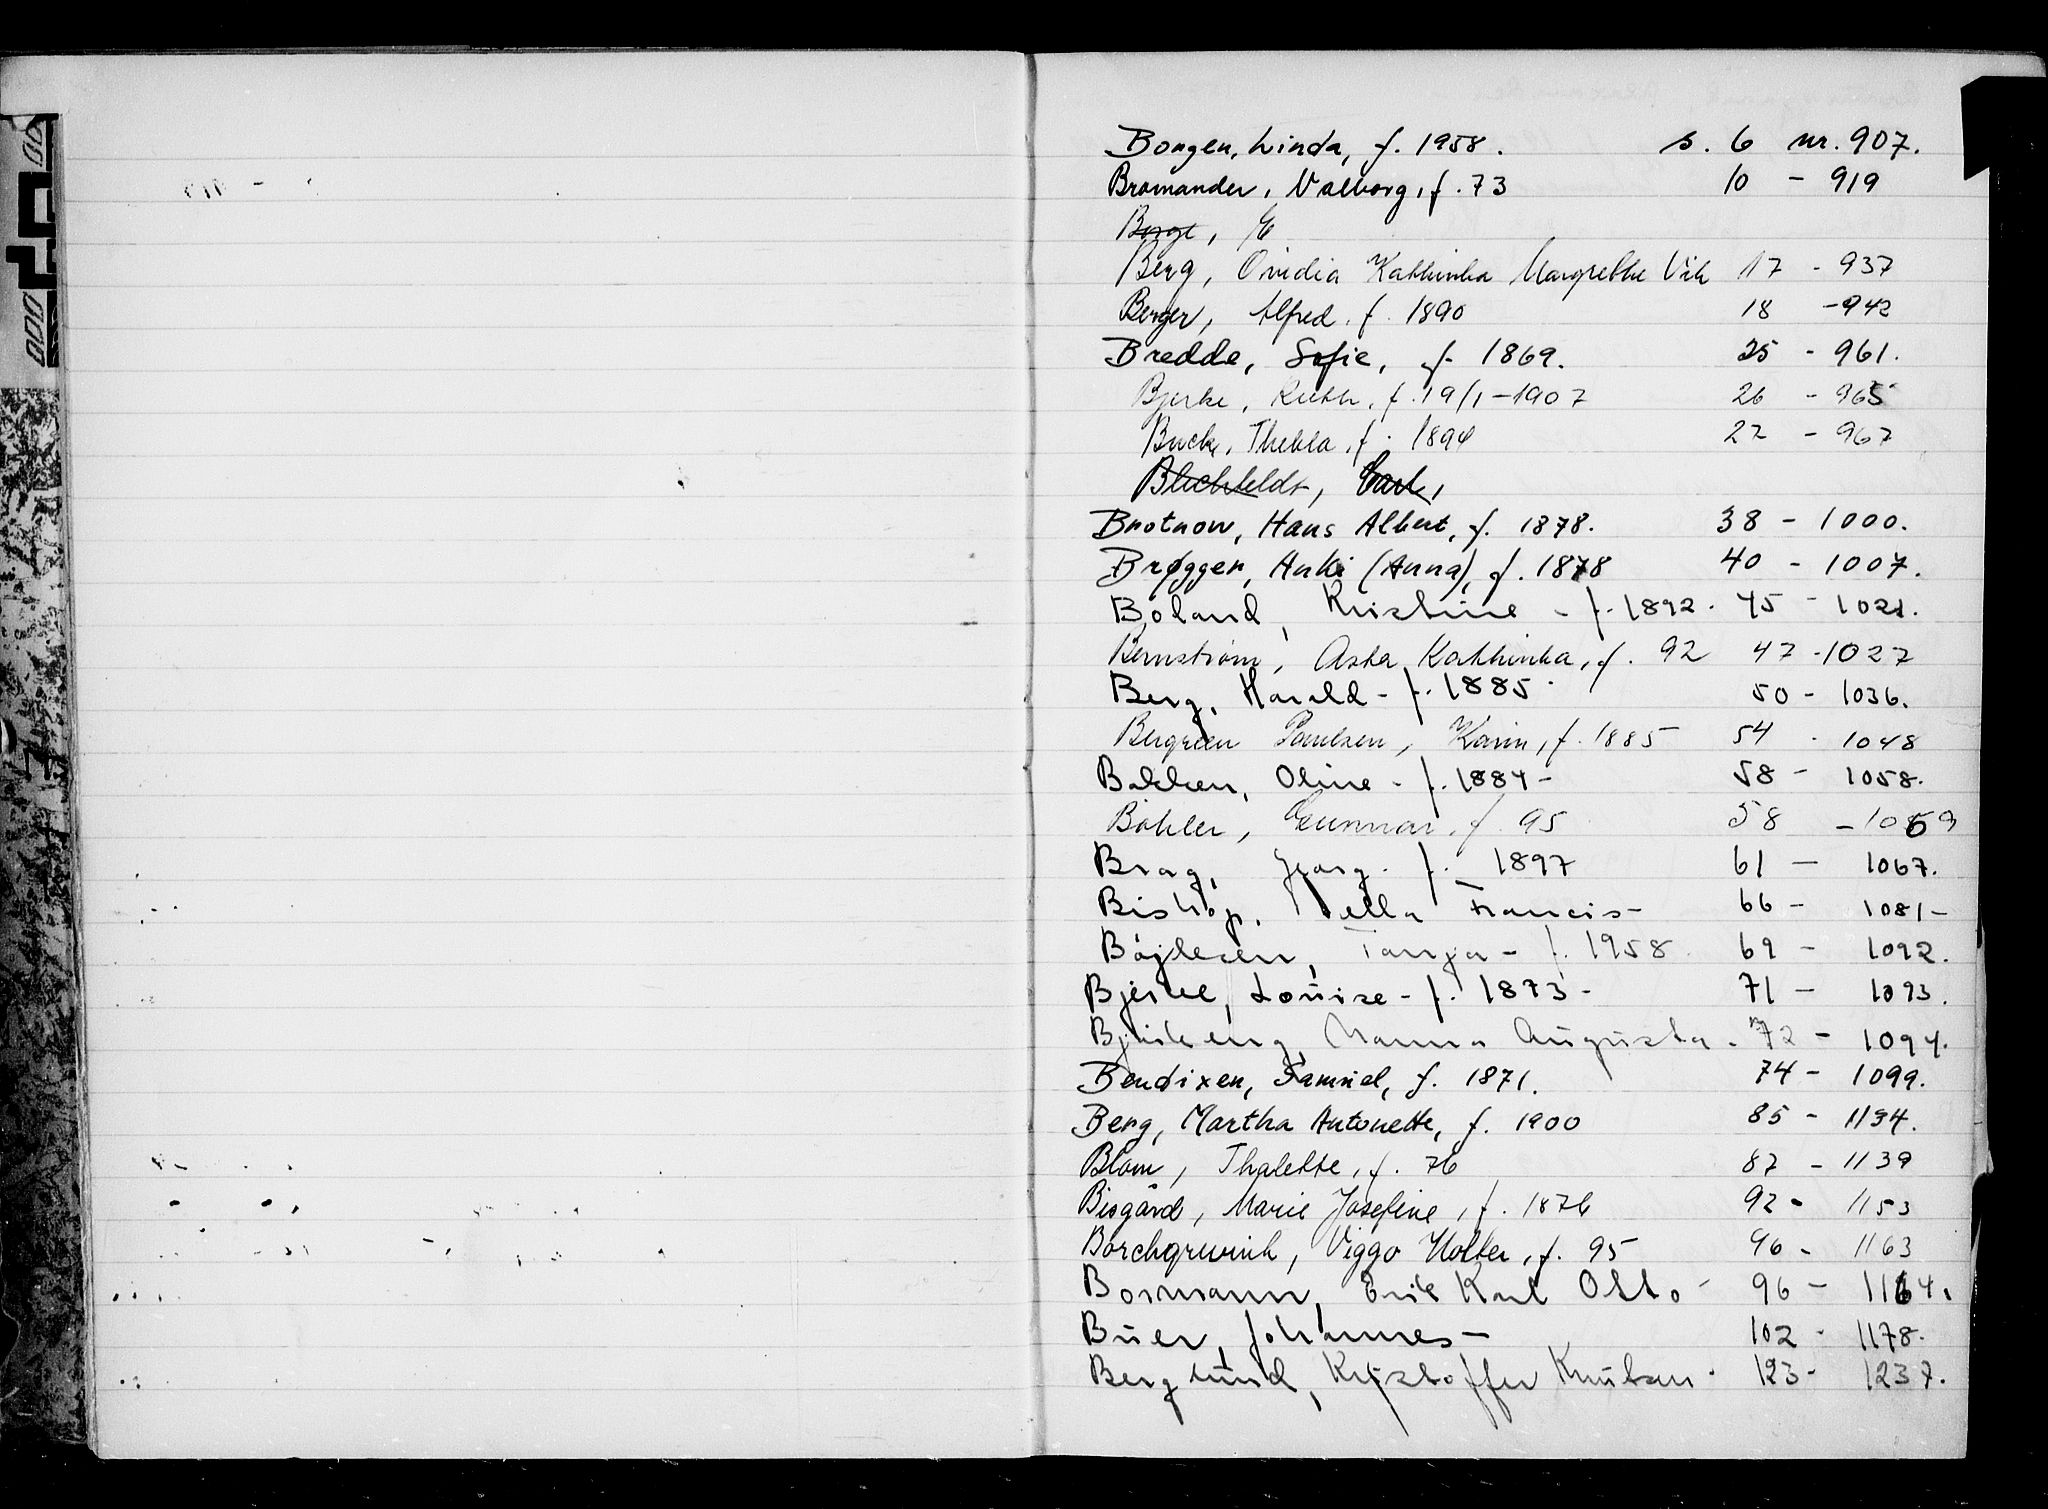 Borgen, Linda, f. 1958. s. 6 nr. 907.
Bromander, Valborg, f. 73 10 - 919
Borge, E
Berg, Ovidia Kathinka Margrethe Vik 17 - 937
Berger, Alfred. f. 1890 18 - 942
Bredde, Sofie, f. 1869. 25 - 961.
Bjerke, Ruth, f. 19/1-1907 26 - 965
Buck, Thekla, f. 1894 27 - 967
Blichfeldt, Carl,
Brotnow, Hans Albert, f. 1878. 38 - 1000.
Brøgger, Anki (Anna), f. 1878 40 - 1007.
Boland, Kristine - f. 1892. 45 - 1021.
Bernstrøm, Asta Kathinka, f. 92 47 - 1027
Berg, Harald - f. 1885. 50 - 1036.
Bergreen Paulsen, Karin, f. 1885 54 - 1048
Bakken, Oline - f. 1884 - 58 - 1058.
Bøhler, Gunnar, f. 95 58 - 1059
Brag, Georg. f. 1897 61 - 1067.
Bishop, Francis - 66 - 1081 -
Bøjlesen, Tanja - f. 1958. 69 - 1092.
Bjerke, Louise - f. 1873 - 71 - 1093.
Bjerkeng, Nanna Augusta. 72 - 1094.
Bendixen, Samuel, f. 1871. 74 - 1099.
Berg, Martha Antonette, f. 1900 85 - 1134.
Blom, Thalette, f. 76 87 - 1139
Bisgård, Marie Josefine, f. 1876 92 - 1153
Borchgrevink, Viggo Holter, f. 95 96 - 1163
Bormann, Erik Karl Otto - 96 - 1164.
Buer, Johannes - 102 - 1178.
Berglund, Kristoffer Knutsen - 123 - 1237.